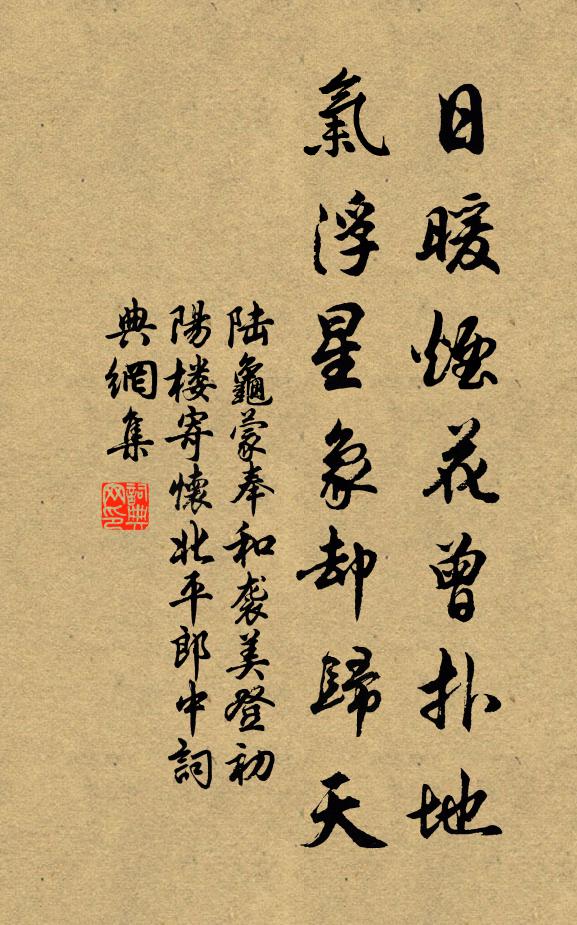 日暖煙花曾扑地
氣浮星象却歸天
陆龜蒙奉和袭美登初
陽楼寄懷北平郎中詞
典網集
詞典
网印